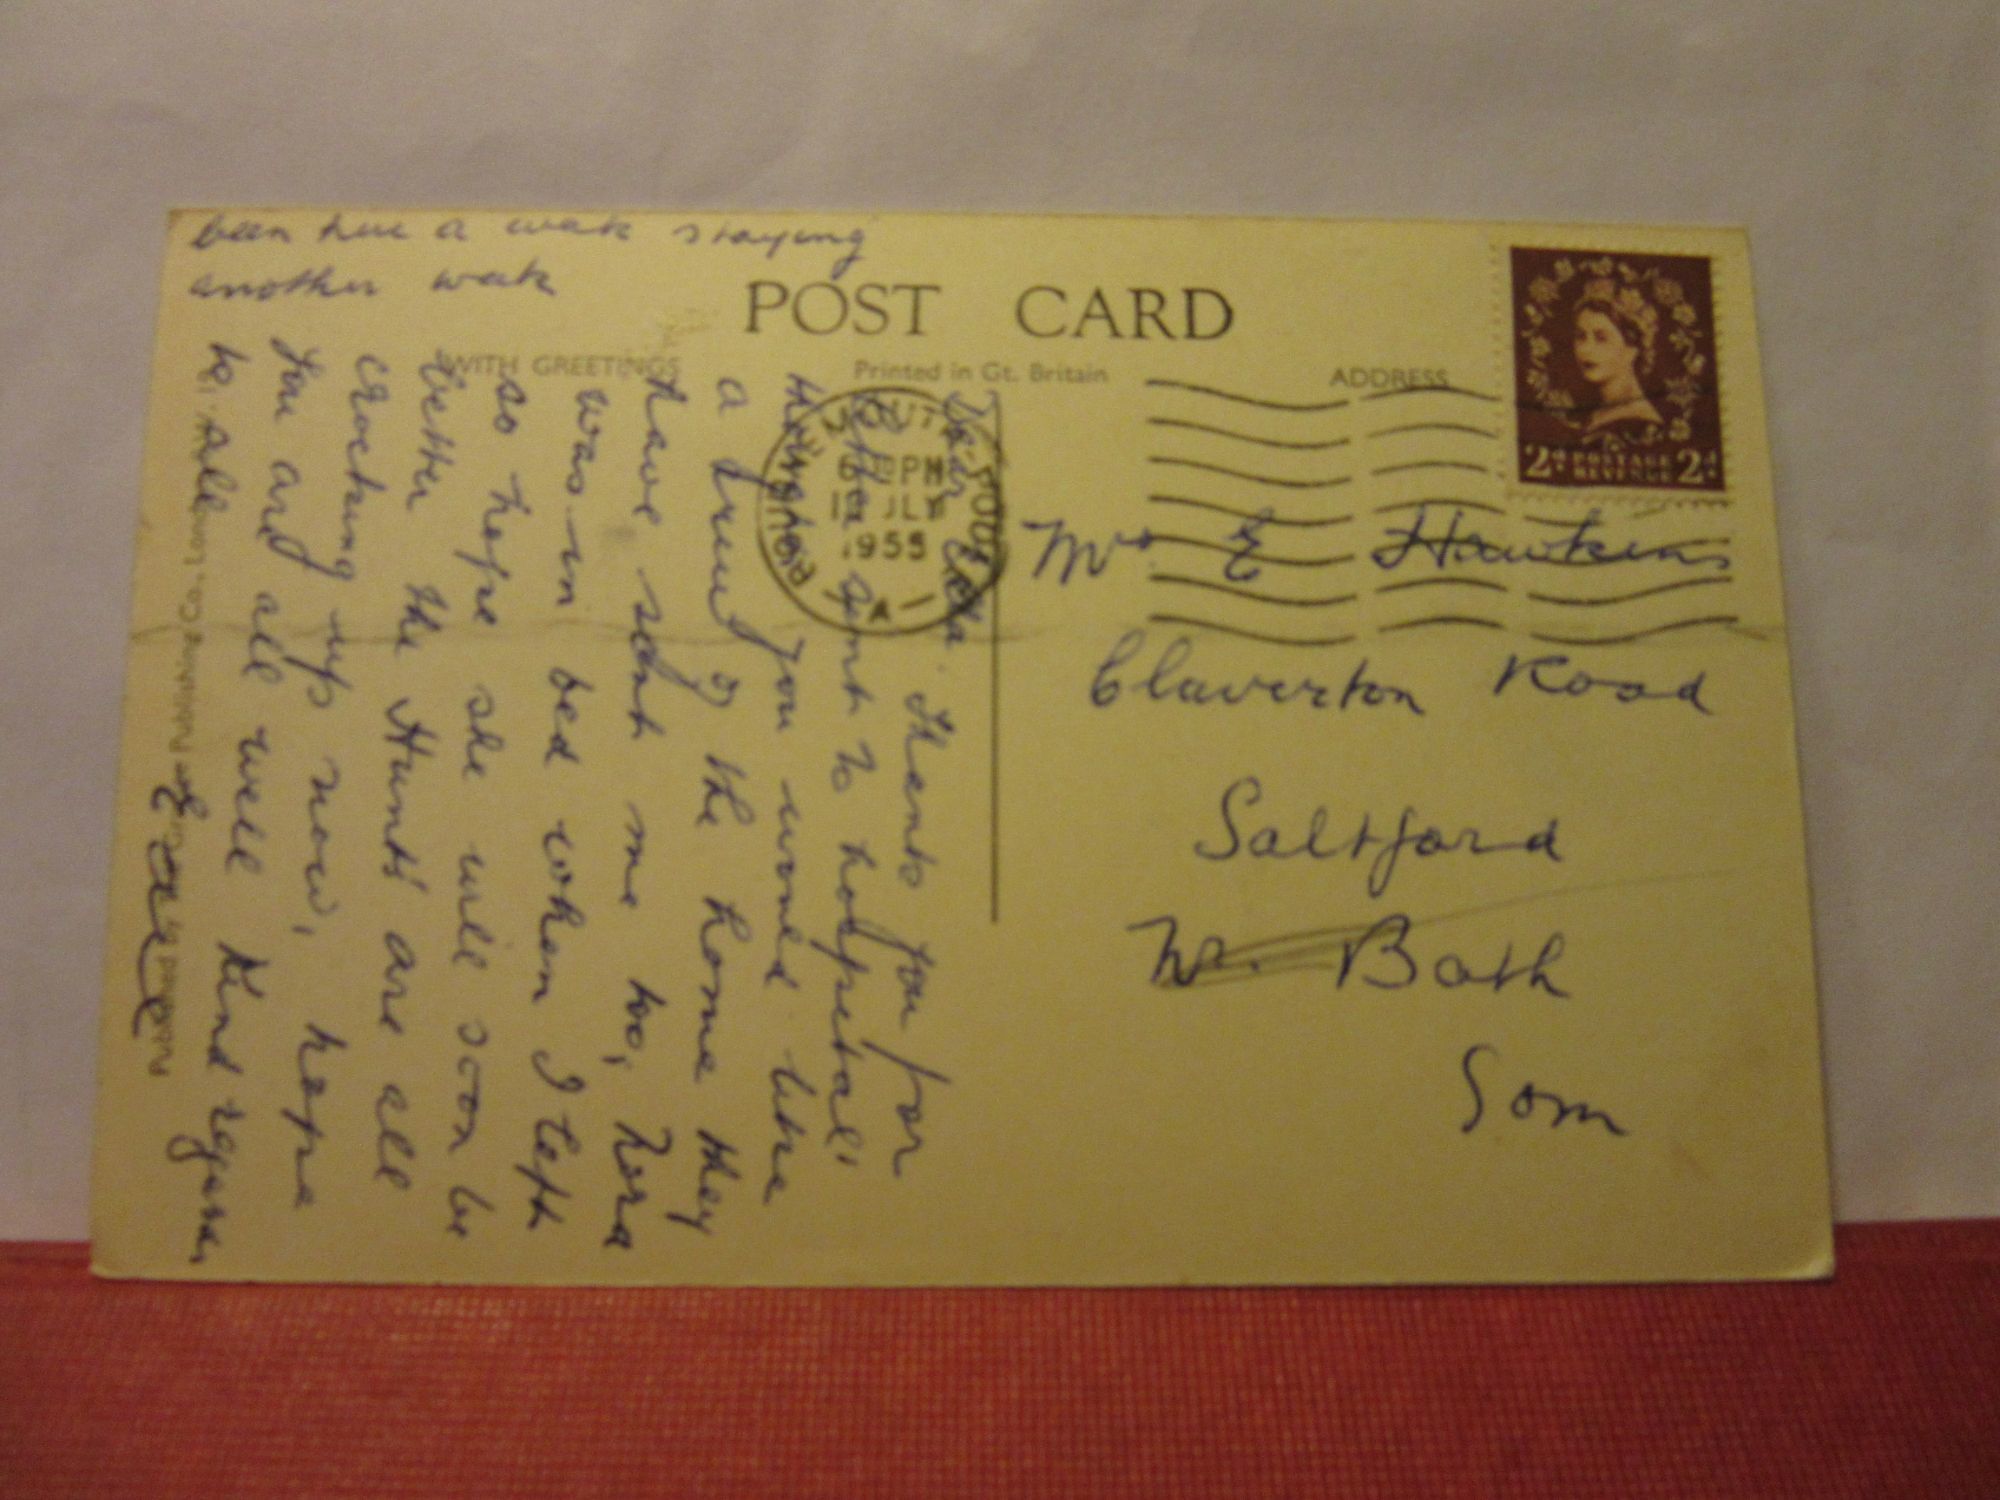 been here a week staying
another week
POST CARD
WITH GREETINGS
Printed in Gt. Britain
ADDRESS
2D POSTAGE REVENUE 2D
BOURNEMOUTH POOLE
6 PM
JLY
1955
A
Dear Etta. Thanks you for
letter sent to hospital
you would like
a friend of the home they
have sent me too, Nora
was in bed when I left
so hope she will soon be
better the Hunts' are all
up now, hope
You and all well Kind regards
to all.
Mrs E Hawkins
Claverton Road
Saltford
Nr. Bath
Som
Publishing Co., London